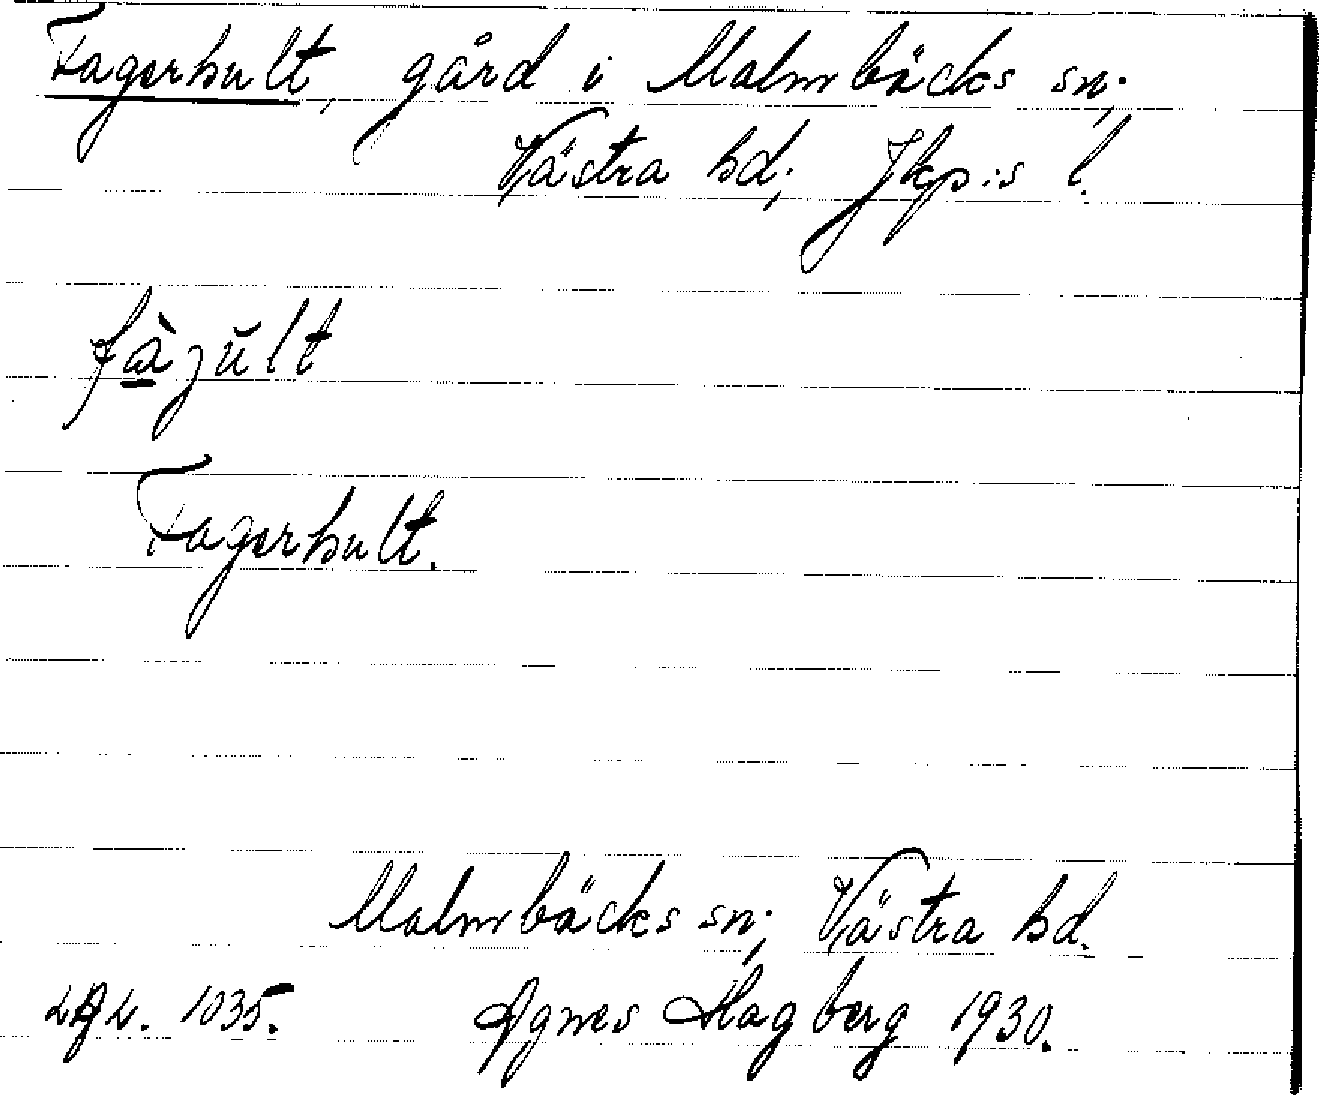 Fagerhult, gård i Malmbäcks sn;
Västra hd; Jkp:s l.
fàjŭlt
Fagerhult.
Malmbäcks sn; Västra hd.
1035. Agnes Hagberg 1930.